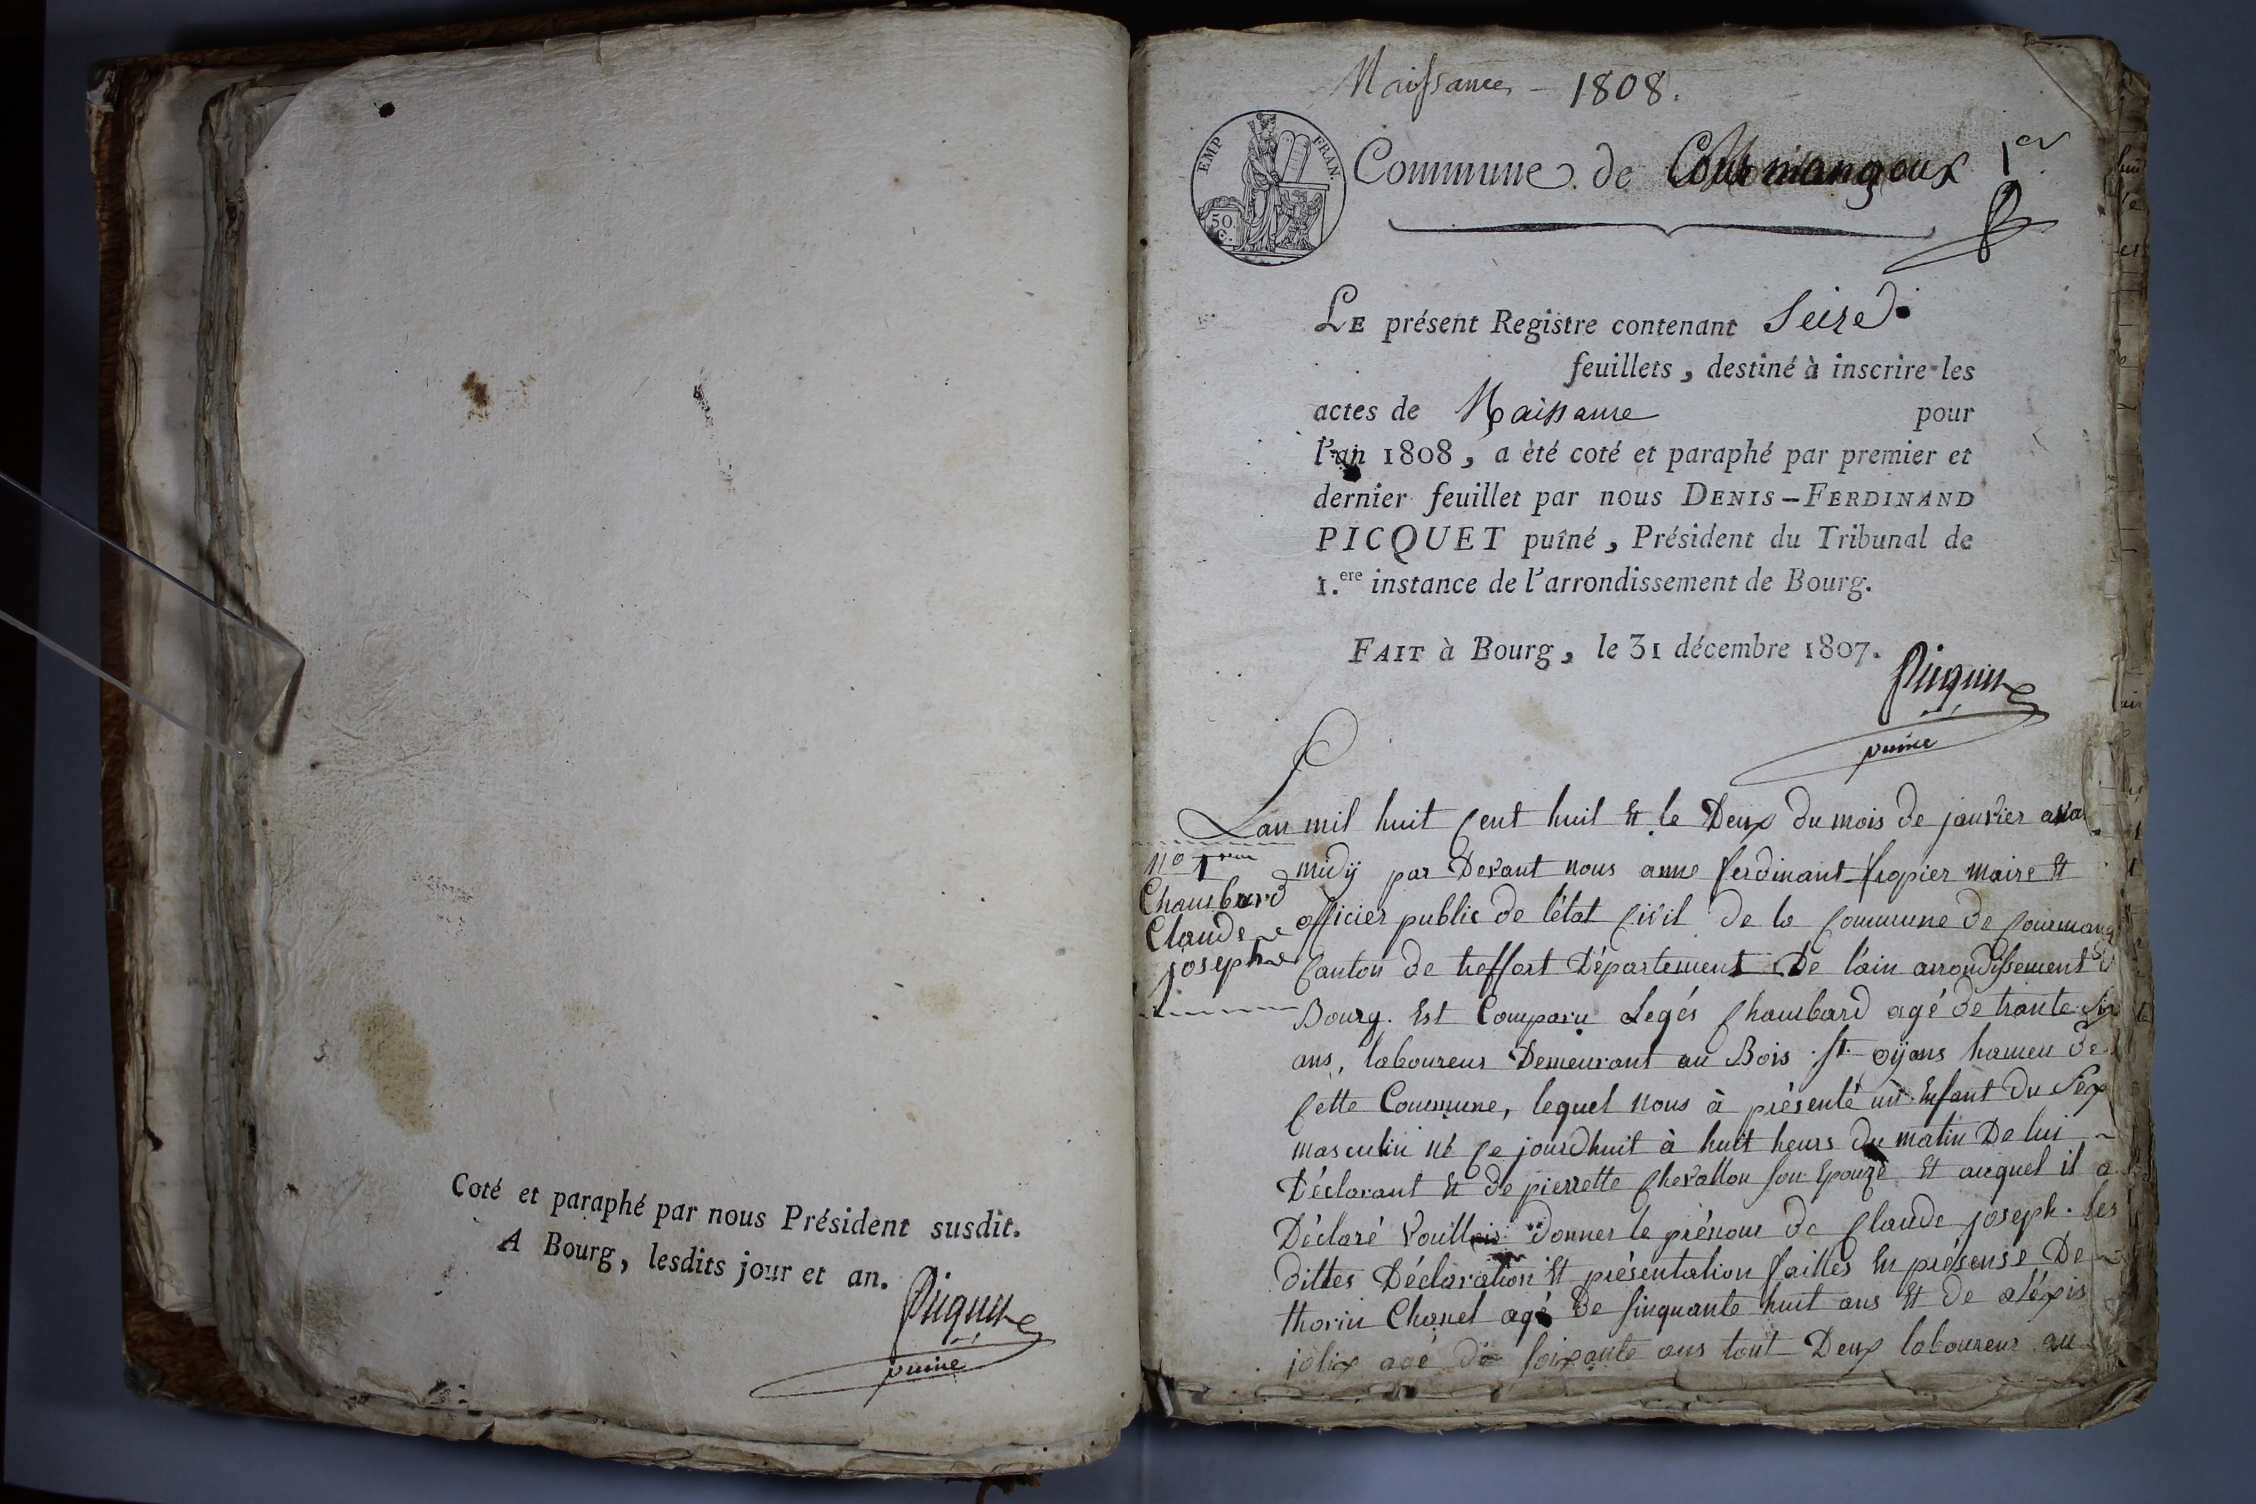 Coté et paraphé par nous Président susdit.
A Bourg, lesdits jour et an.
Picquet
puiné
Naissances - 1808.
EMP FRAN.
50 C.
Commune de Courmangoux 1er
LE présent Registre contenant Seize
feuillets, destiné à inscrire les
actes de Naissance pour
l'an 1808, a èté coté et paraphé par premier et
dernier feuillet par nous DENIS-FERDINAND
PICQUET puîné, Président du Tribunal de
1.ere instance de l'arrondissement de Bourg.
FAIT à Bourg, le 31 décembre 1807.
Picquet
puiné
Lan mil huit Cent huit Et le Deux du mois de janvier ava
No 1
Chambard
Claude
joseph
midÿ par Devant nous anne ferdinant fropier maire Et
officier public de l'état Civil de la Commune de Courmang
Canton de treffort Département De l'ain arrondissement de
Bourg. Est Comparu Legés Chambard agé de trante six
ans, laboureur Demeurant au Bois St. oÿans hameu de
Cette Commune, lequel nous à présenté un Enfant du Sex
masculin né Ce jourdhuit à huit heurs du matin De lui
Déclarant Et de pierrette Chevallon Son Epouze Et auquel il a
Déclaré Vouilloir donner le prénom de Claude joseph. les
dittes Déclaration Et présentation faittes En présense De
thorin Chanel agé De Sinquante huit ans Et de aléxis
jolix agé de Soixante ans tout Deux laboureur au